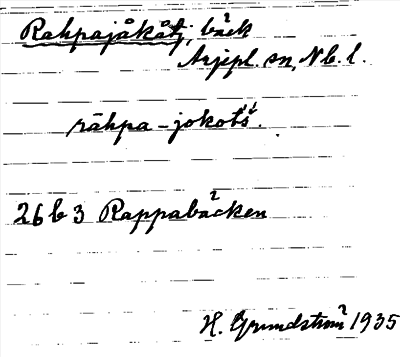 Rahpajåkåtj, bäck
Arjepl. sn, Nb. l.
rāhpa-jokots̄́.
26 b 3 Rappabäcken
H. Grundström 1935